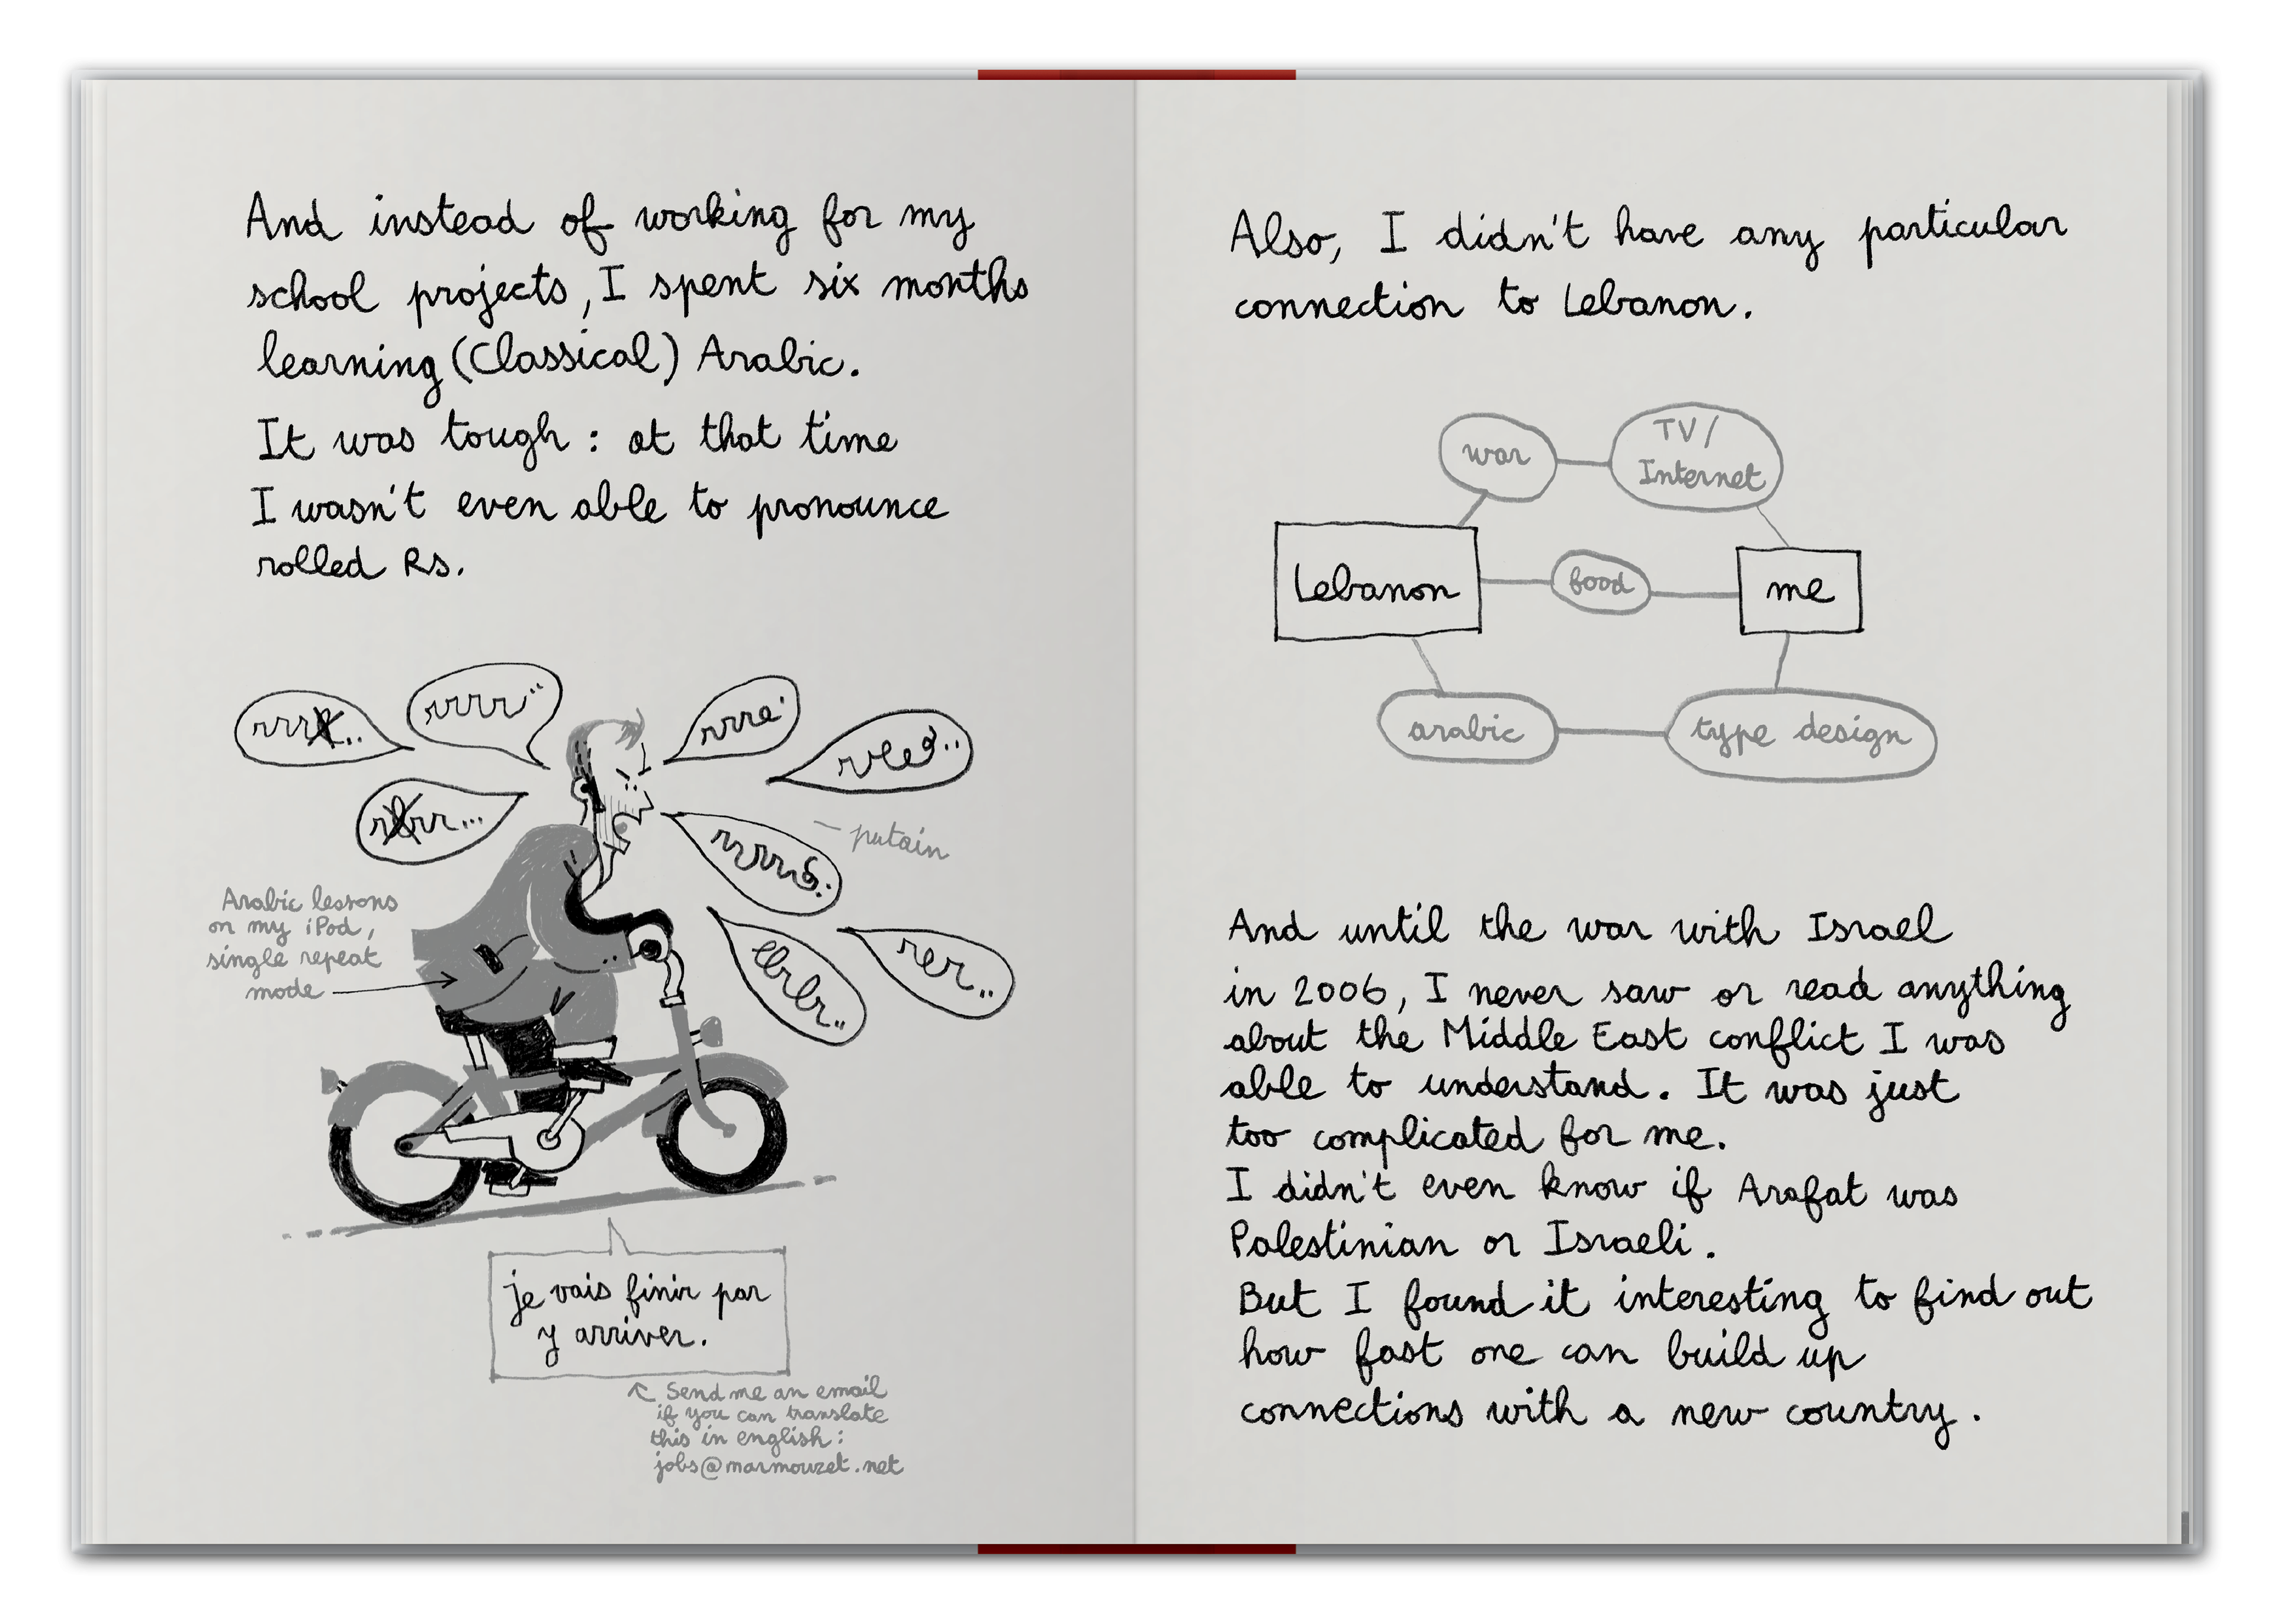 And instead of working for my
school projects, I spent six months
learning (Classical) Arabic.
It was tough : at that time
I wasn't even able to pronounce
rolled Rs.
rrrr..
rrre.
rrrr...
— putain
rer..
Arabic lessons
on my iPod,
single repeat
mode
je vais finir par
y arriver.
Send me an email
if you can translate
this in english :
jobs@marmouzet.net
Also, I didn't have any particular
connection to Lebanon.
war
TV/
Internet
Lebanon
food
me
arabic
type design
And until the war with Israel
in 2006, I never saw or read anything
about the Middle East conflict I was
able to understand. It was just
too complicated for me.
I didn't even know if Arafat was
Palestinian or Israeli.
But I found it interesting to find out
how fast one can build up
connections with a new country.